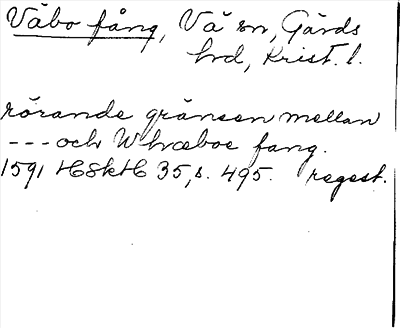 Våbo fång, Vä sn, Gärds
hd, Krist. l.
rörande gränsen mellan
--- och Whæboe fang.
1591 HSkH 35, s. 495. regest.